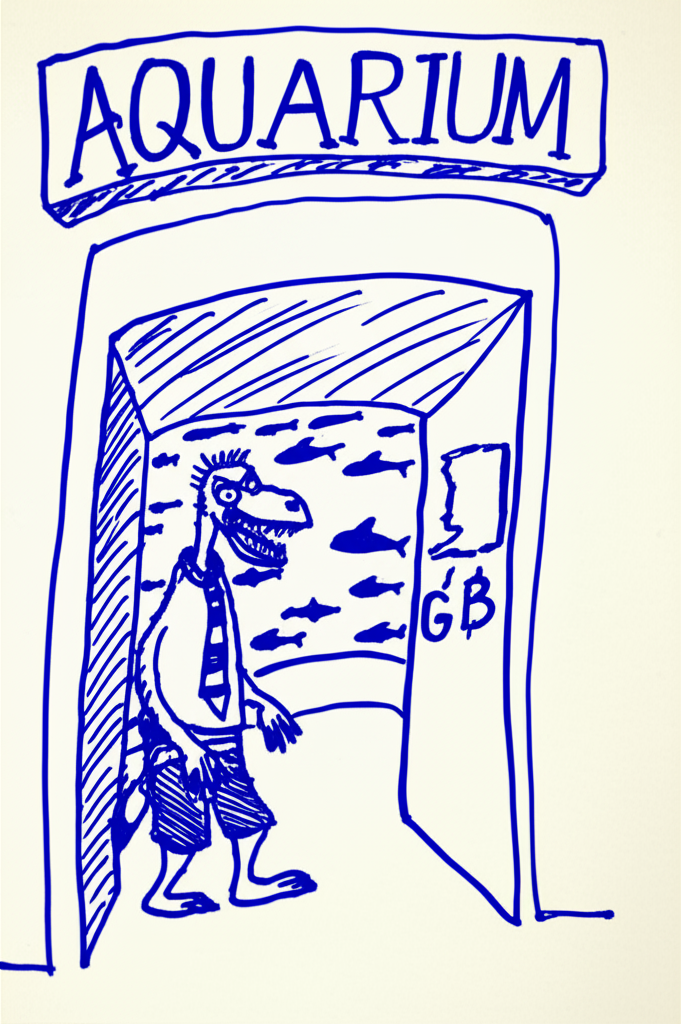 AQUARIUM
GB